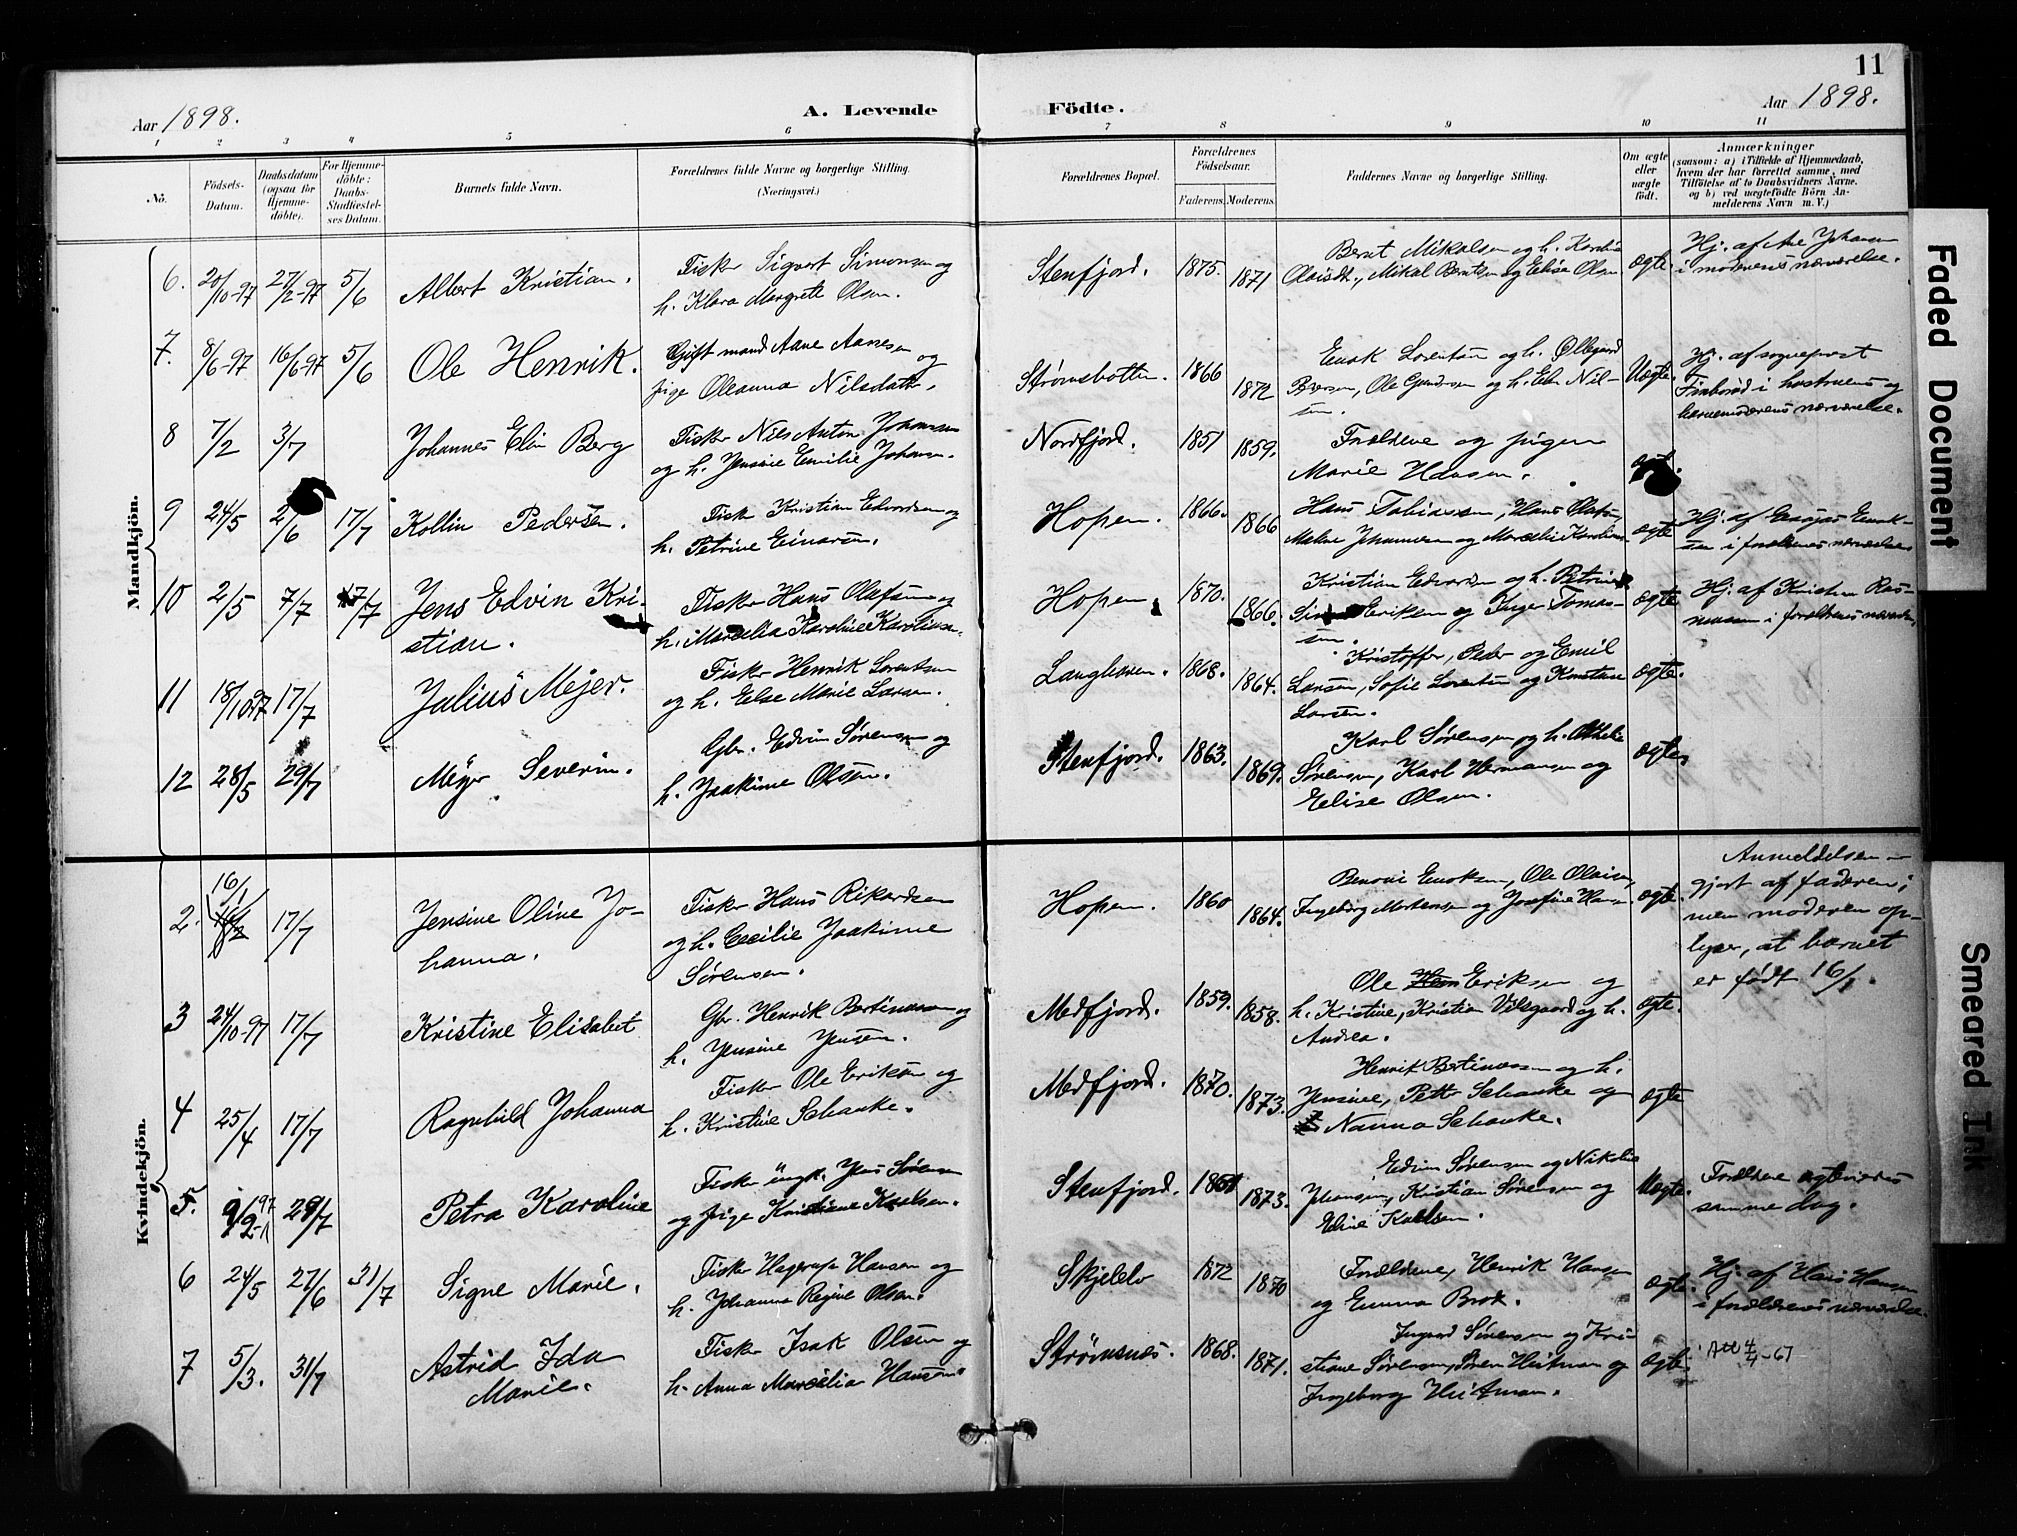 11
Aar 1898.
A. Levende
Födte.
Aar 1898.
1 2 3 4 5 6 7 8 9 10 11
Nö.
Födsels-
Datum.
Daabsdatum
(ogsaa for
Hjemme-
döbte).
For Hjemme-
döbte:
Daabs-
Stadfæstel-
ses Datum.
Barnets fulde Navn.
Forældrenes fulde Navne og borgerlige Stilling.
(Næringsvei.)
Forældrenes Bopæl.
Forældrenes
Födselsaar.
Faderens. Moderens.
Faddernes Navne og borgerlige Stilling.
Om ægte
eller
uægte
födt.
Anmærkninger
(saasom: a) i Tilfælde af Hjemmedaab,
hvem der har forrettet samme, med
Tilföielse af to Daabsvidners Navne.
og b) ved uægtefödte Börn An-
melderens Navn m. V.)
Mandkjön.
6. 20/10-97 27/2-97 5/6 Albert Kristian.
Fisker Sigvart Simonsen og
h. Klara Margrete Olsen.
Stenfjord. 1875. 1871
Bernt Mikalsen og h.
Mikal Berntsen og Elise Olsen
ægte.
Hj. af Ane Johansen
i moderens nærværelse.
7. 8/6-97 16/6-97 5/6 Ole Henrik.
Gift mand Aane Aanesen og
pige Oleanna Nilsdatter.
Strømsbotten. 1866 1872
Enok Lorentsen og h. Ollegard
Ole Gundersen og h. Elen Nil-
sen.
Uægte.
Hj. af sogneprest
i hustruens og
barnemoderens nærværelse.
8 7/2 3/7 Johannes Elin Berg
Fisker Nils Anton Johansen
og h. Jensine Emilie Johansen.
Nordfjord. 1851 1859.
Forældrene og pigen
Marie Hansen.
9 24/5 2/6 17/7 Kollin Pedersen.
Fisker Kristian Edvardsen og
h. Petrine Einarsen.
Hopen. 1866. 1866
Hans Tobiassen, Hans Olafsen
Malene Johannesen og Marselie Karoliussen
ægte
Hj. af Esaias Enok-
sen i forældrenes nærværelse
10 2/5 7/7 17/7 Jens Edvin Kri-
stian.
Fisker Hans Olafsen og
h. Marselia Karoline Karoliussen.
Hopen. 1870. 1866.
Kristian Edvardsen og h. Petrine
Eriksen og Inger Tomas-
sen.
ægte
Hj. af Kristen Ras-
mussen i forældrenes nærvær.
11 18/10 97 17/7 Julius Mejer.
Fisker Henrik Lorentsen
og h. Else Marie Larsen.
Langhavn. 1868. 1864.
Kristoffer, Peder og Emil
Larsen, Sofie Lorentsen og Konstanse
Larsen.
ægte.
12 28/5 29/7 Mejer Severin.
Gbr. Edvin Sørensen og
h. Joakime Olsen.
Stenfjord. 1863. 1869.
Karl Sørensen og h. Othelie
Sørensen, Karl Hermansen og
Elise Olsen.
ægte.
Kvindekjön.
2. 16/1 17/7 Jensine Oline Jo-
hanna.
Fisker Hans Rikardsen
og h. Cecilie Joakime
Sørensen.
Hopen. 1860 1864.
Benoni Enoksen, Ole Olsen,
Ingeborg Mortensen og Josefine Hansen.
ægte.
Anmeldelsen
gjort af faderen;
men moderen op-
lyser, at barnet
er født 16/1.
3 24/10-97 17/7 Kristine Elisabet
Gbr. Henrik Bertinussen og
h. Jensine Jensen.
Medfjord. 1859. 1858.
Ole Eriksen og
h. Kristine, Kristian Vilsgaard og h.
Andrea.
ægte.
4 25/4 17/7 Ragnhild Johanna
Fisker Ole Eriksen og
h. Kristine Schanke.
Medfjord. 1870. 1873.
Henrik Bertinussen og h.
Jensine, Petter Schanke og
Nanna Schanke.
ægte
5. 9/12-97 29/7 Petra Karoline
Fisker ungk. Jens Sørensen
og pige Kristiane Karlsen.
Stenfjord. 1861 1873.
Edvin Sørensen og Nikolai
Johansen, Kristian Sørensen og
Edine Karlsen.
Uægte.
Forældrene ægtevies
samme dag.
6 24/5 27/6 31/7 Signe Marie.
Fisker Hagerup Hansen og
h. Johanna Regine Olsen.
Skjelelv 1872 1870
Forældrene, Henrik Hansen
og Emma Brok.
ægte.
Hj. af Hans Hansen
i forældrenes nærværelse.
7 5/3. 31/7 Astrid Ida
Marie.
Fisker Isak Olsen og
h. Anna Marselia Hansen.
Strømsnes. 1868. 1871.
Ingvard Sørensen og Kri-
stiane Sørensen, Søren Heitman og
Ingeborg Heitman.
ægte.
Att 4/4-67
Faded Document
Smeared Ink